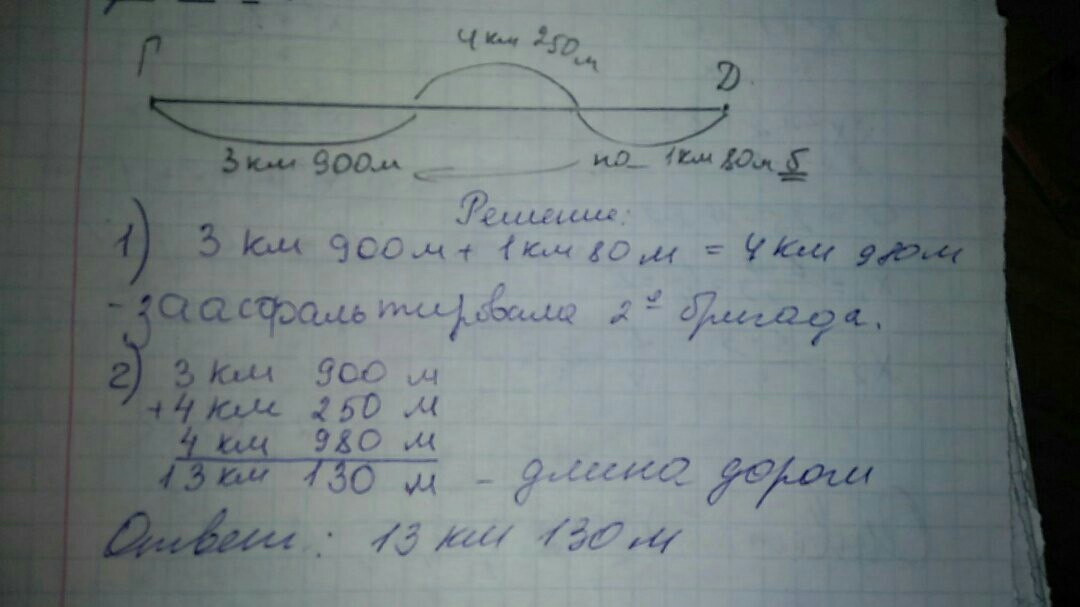 4 км 250 м
Г
Д
3 км 900 м
на 1 км 80 м б
Решение:
1) 3 км 900 м + 1 км 80 м = 4 км 980 м
- заасфальтировала 2я бригада.
2) 3 км 900 м
+ 4 км 250 м
4 км 980 м
13 км 130 м - длина дороги
Ответ: 13 км 130 м